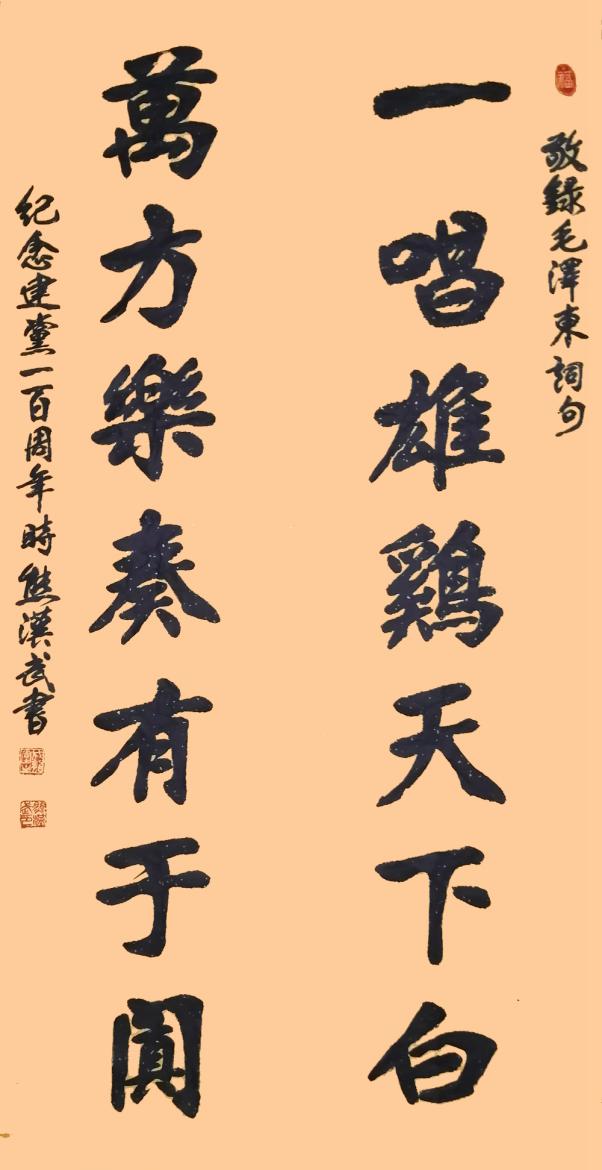 敬録毛澤東詞句
一唱雄鷄天下白
萬方樂奏有于闐
紀念建黨一百周年時熊漢武書